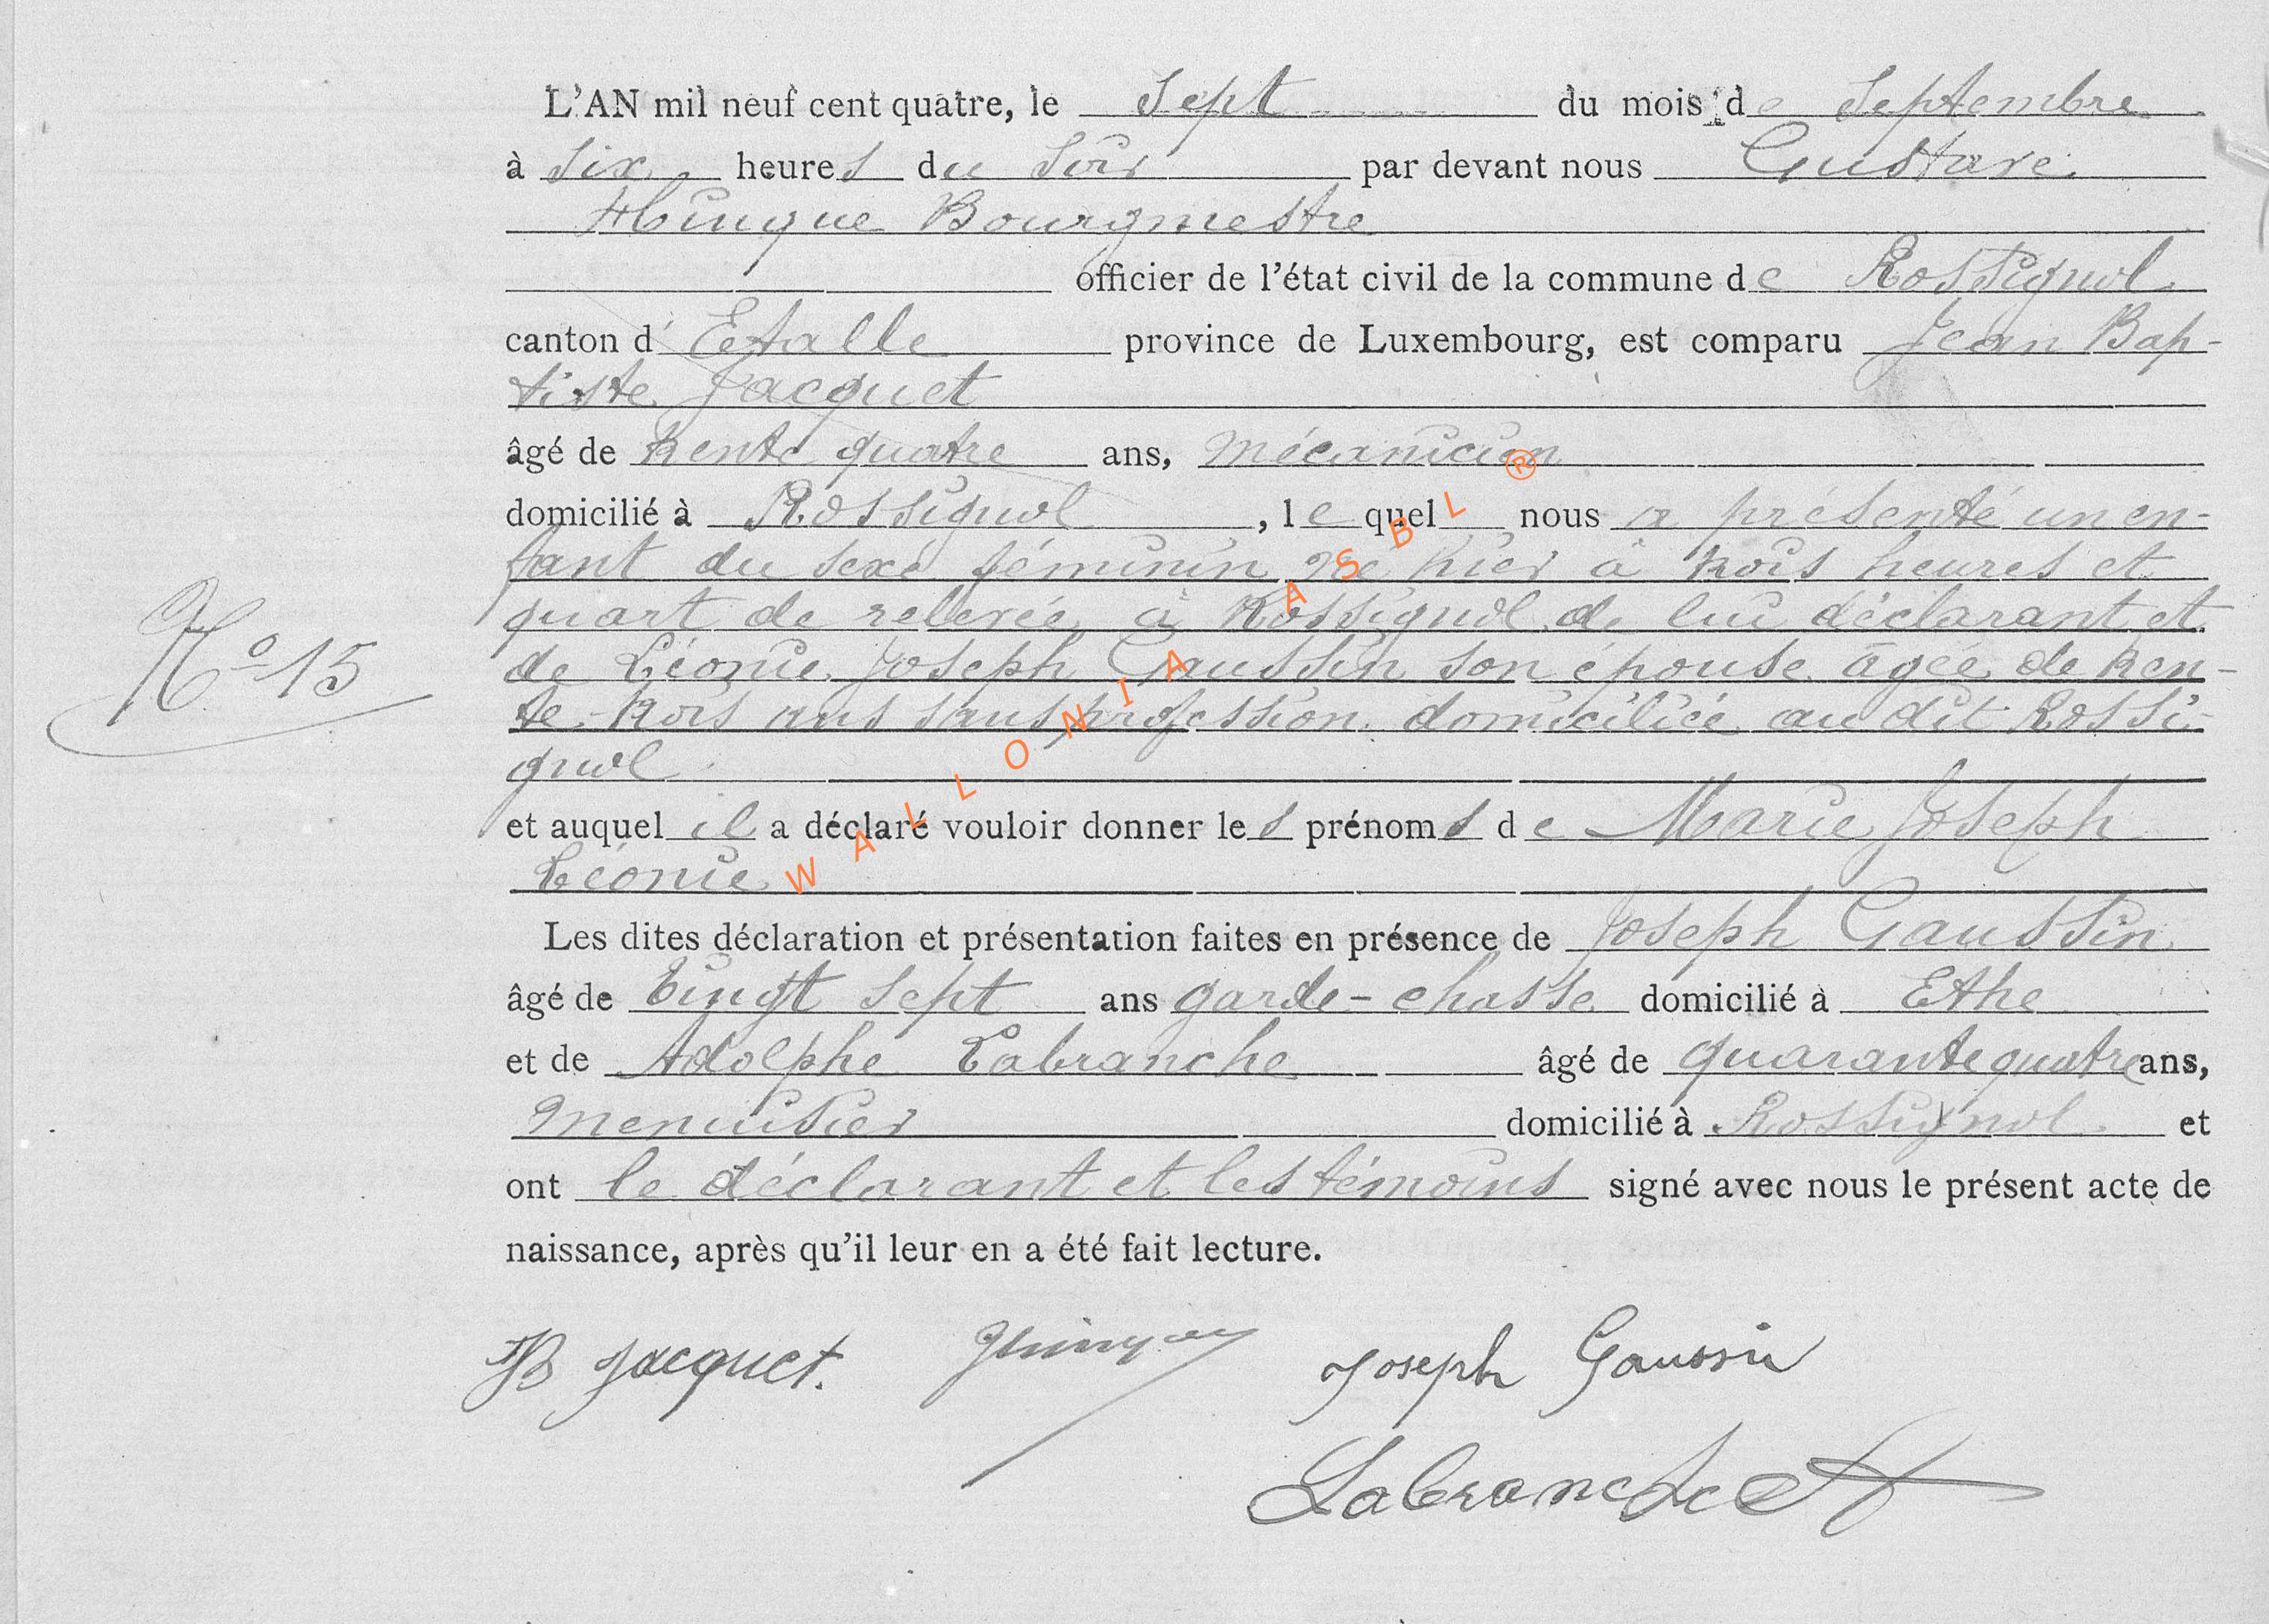 L'AN mil neuf cent quatre, le sept du mois de Septembre
à six heures du soir par devant nous Gustave
Hinque Bourgmestre
officier de l'état civil de la commune de Rossignol
canton d'Etalle province de Luxembourg, est comparu Jean Bap-
tiste Jacquet
âgé de trente quatre ans, mécanicien
domicilié à Rossignol, lequel nous a présenté un en-
fant du sexe féminin né hier à trois heures et
quart de relevée à Rossignol de lui déclarant et
N° 15
de Léonie Joseph Gaussin son épouse âgée de tren-
te-trois ans sans profession domiciliée au dit Rossi-
gnol
et auquel il a déclaré vouloir donner les prénoms de Marie Joseph
Léonie
WALLONIA ASBL ®
Les dites déclaration et présentation faites en présence de Joseph Gaussin
âgé de vingt sept ans garde-chasse domicilié à Ethe
et de Adolphe Labranche âgé de quarante quatre ans,
menuisier domicilié à Rossignol et
ont le déclarant et les témoins signé avec nous le présent acte de
naissance, après qu'il leur en a été fait lecture.
JB Jacquet. Joseph Gaussin
Labranche A